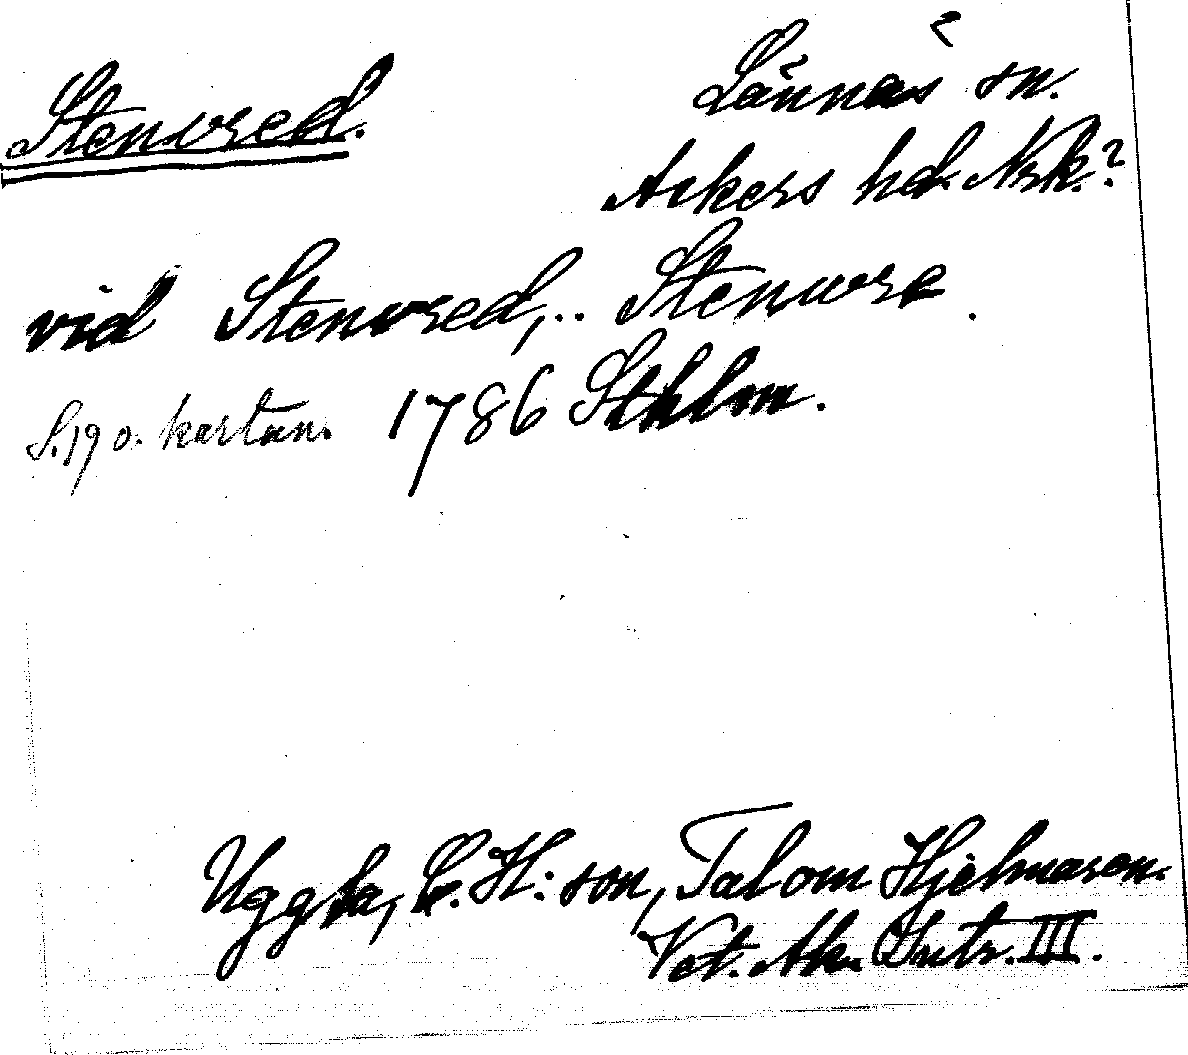 Stenvred.
Lännäs sn.
Askers hd. Nrk.?
vid Stenvred, .. Stenvre.
S. 19 o. kartan. 1786 Sthlm.
Uggla, C. H:son, Tal om Hjelmaren.
Vet. Ak. Intr. III.